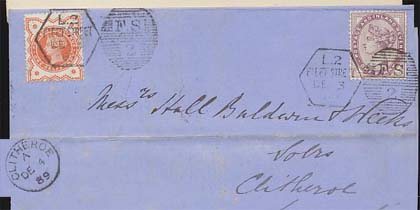 L.2
FLEET STREET
DE
F.S
2
L.2
FLEET STRE
DE 3
F.S
2
Mess.rs Hall Baldwin & Weeks
Solrs
Clitheroe
CLITHEROE
7
DE 4
89